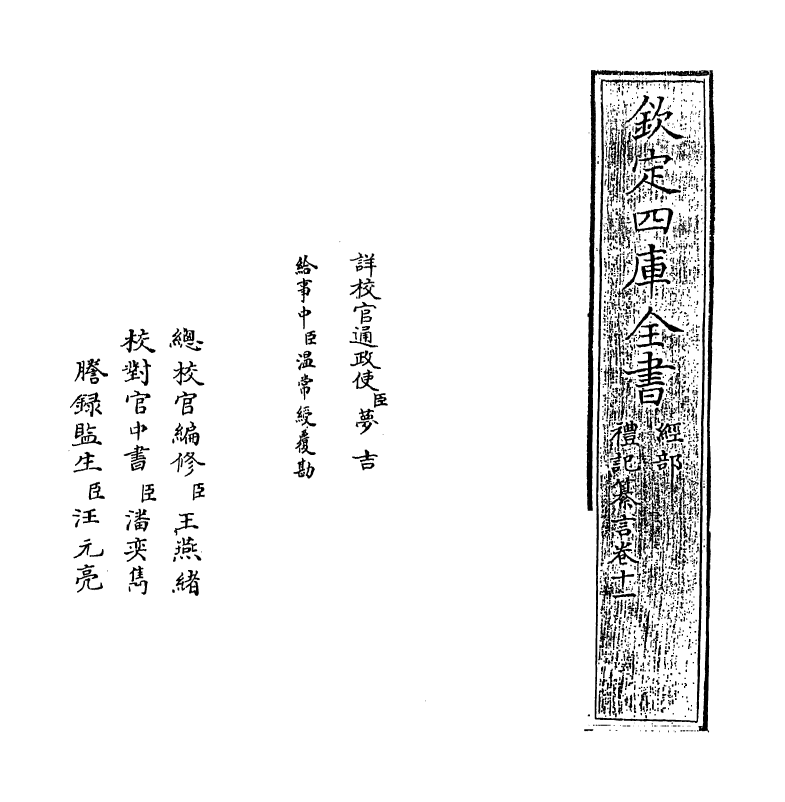 欽定四庫全書
經部
禮記纂言卷十一
詳校官通政使臣夢吉
給事中臣温常綬覆勘
總校官編修臣王燕緒
校對官中書臣潘奕雋
謄録監生臣汪元亮